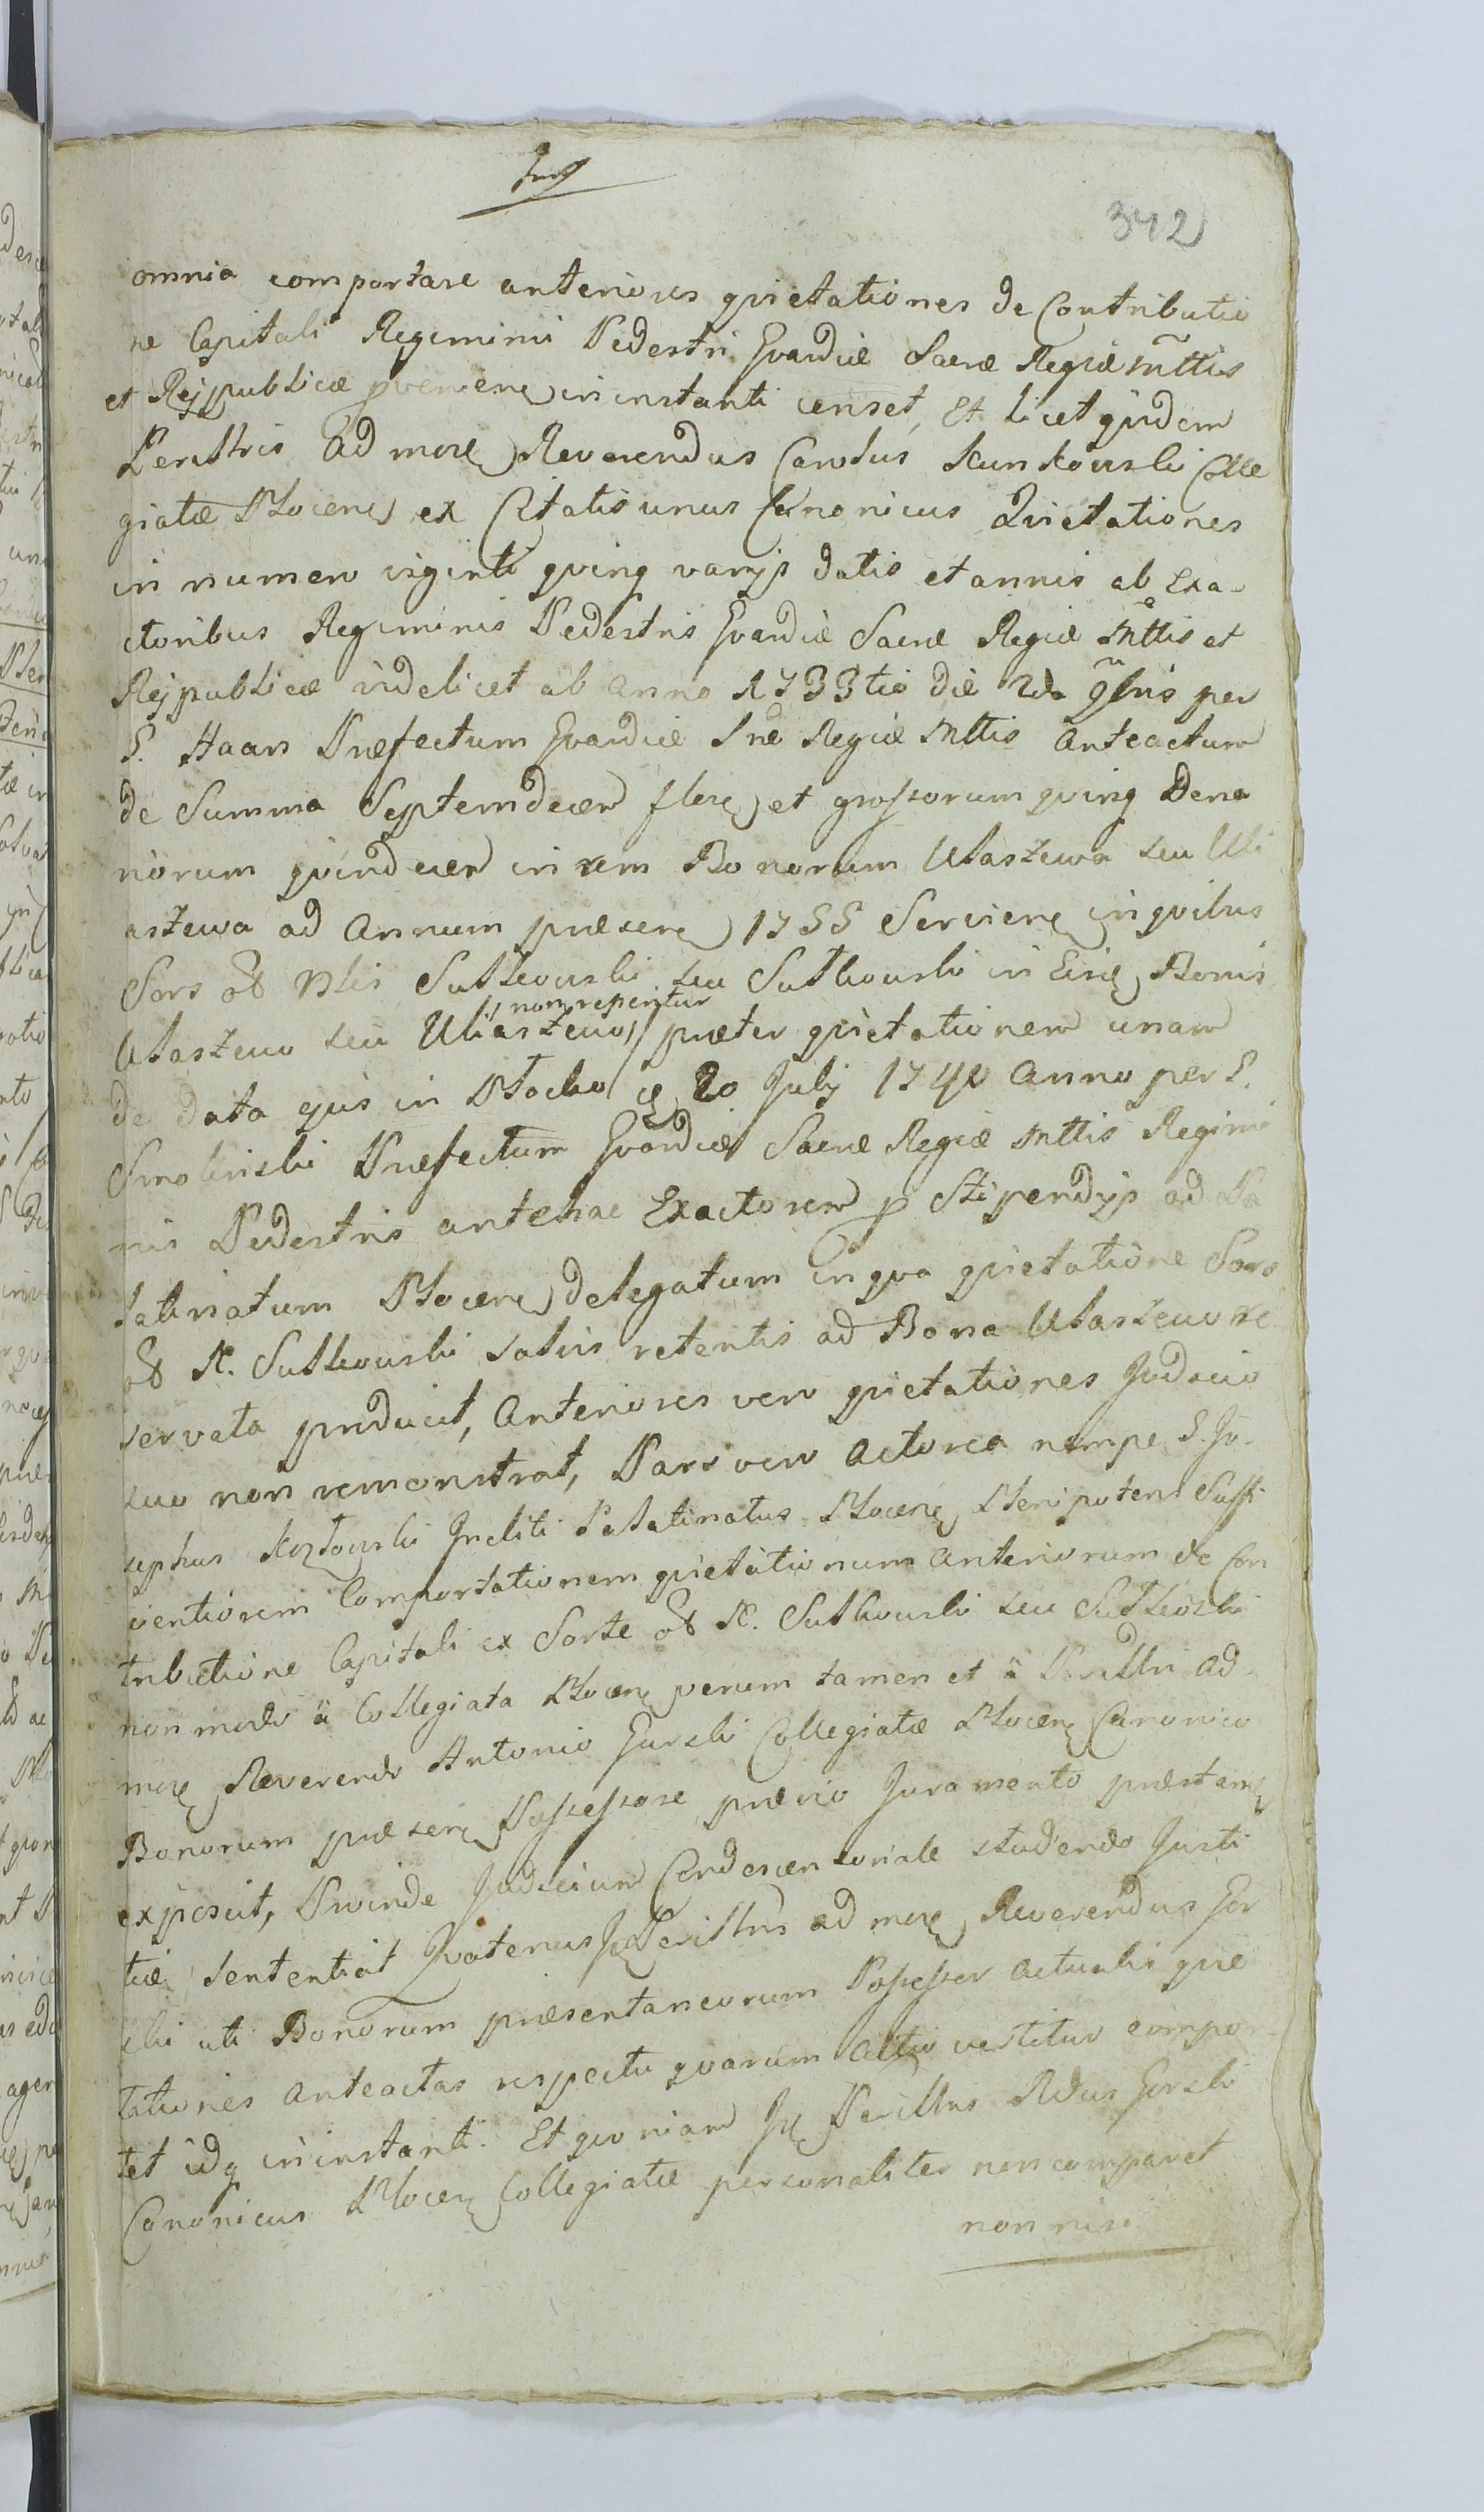 342
omnia comportare anteriores qvietationes de Contributio
ne Capitali Regimini Pedestri Gvardiæ Sacræ Regiæ Mttis
et Rejpublicæ pvenien in instanti censet, Et licet qvidem
Perillris ad mor Reverendus Carolus Kunkowski Colle
giatæ Plocen ex Citatis unus Canonicus Qvietationes
in numero viginti qvinq varijs datis et annis ab Exa-
ctoribus Regiminis Pedestris Gvardiæ Sacræ Regiæ Mttis et
Rejpublicæ videlicet ab Anno 1733tio die 2da 9bris per
G. Haan Præfectum Gvardiæ Sræ Regiæ Mttis Anteactum
de Summa Septemdecem flor et grossorum qvinq Dena
riorum qvindecem in rem Bonorum Ułaszewa seu Uli
aszewa ad Annum præsen 1755 Servien in qvibus
Sors olb Nlis Sutkowski seu Sutkowski in Eisd Bonis
Ułaszewo seu Uliaszewo // non reperitur // præter qvietationem unam
de data ejus in Płocko 20 July 1740 Anno per G.
Smolinski Præfectum Gvardiæ Sacræ Regiæ Mttis Regimi
nis Pedestris antehac Exactorem p Stipendijs ad Pa
latinatum Plocen delegatum in qva qvietatione Sors
olb N. Sutkowski satis retentis ad Bona Ułaszewo re
servata producit, Anteriores vero qvietationes Judicio
suo non remonstrat, Pars vero Actorea nempe G. Jo-
sephus Kozłowski Incliti Palatinatus Plocen Plenipotens Suffi
cientiorem Comportationem qvietationum Anteriorum de Con
tributione Capitali ex Sorte olb N. Sutkowski seu Sutkoski
non modo à Collegiata Plocen verum tamen et à Perillri ad
mor Reverendo Antonio Gurski Collegiatæ Plocen Canonico
Bonorum præsen Possessore prævio Juramento præstan
exposcit, Proinde Judicium Condescensoriale studendo Justi
tiæ sententiat Qvatenus Idem Perillris ad mor Reverendus Gor
ski uti Bonorum præsentaneorum Possessor Actualis qvie
tationes Anteactas respectu qvarum Actio vertitur compor-
tet idq in instanti. Et qvoniam Idem Perillris Rdus Gorski
Canonicus Plocen Collegiatæ personaliter non comparet
non nisi